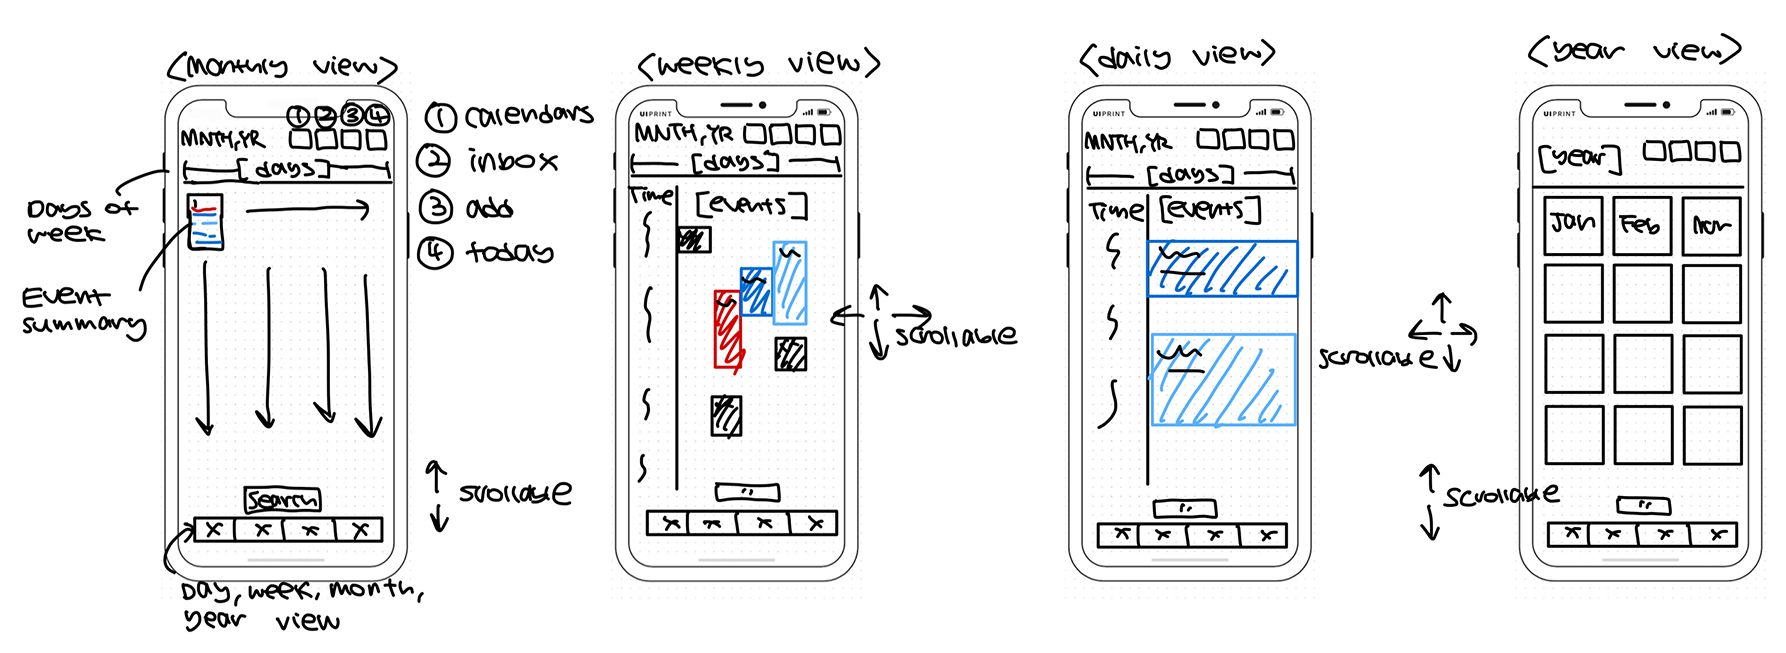 <monthly view>
① ② ③ ④
MNTH, YR
[days]
Search
x x x x
Days of
week
Event
summary
Day, week, month,
year view
① calendars
② inbox
③ add
④ today
scrollable
<weekly view>
UIPRINT
MNTH, YR
[days]
Time
[events]
x x x x
scrollable
<daily view>
UIPRINT
MNTH, YR
[days]
Time
[events]
x x x x
scrollable
<year view>
UIPRINT
[year]
Jan Feb Mar
x x x x
scrollable